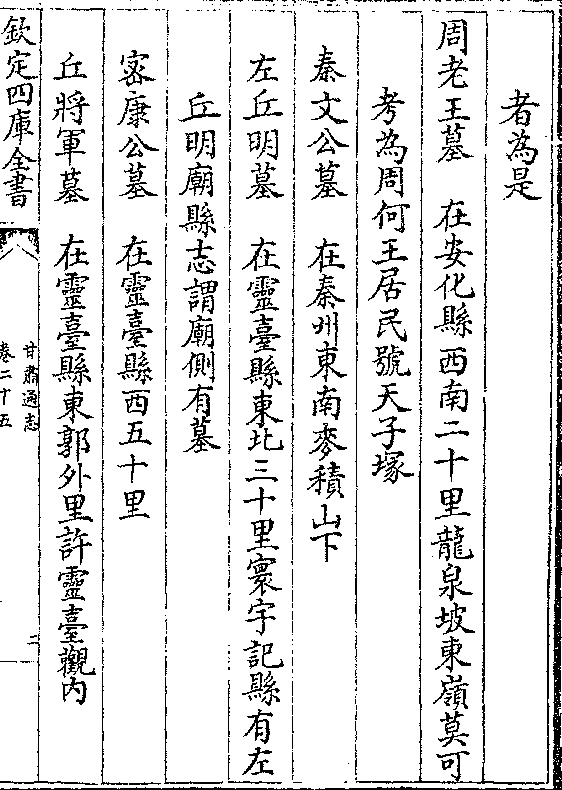 者為是
周老王墓　在安化縣西南二十里龍泉坡東嶺莫可
考為周何王居民號天子塚
秦文公墓　在秦州東南麥積山下
左丘明墓　在靈臺縣東北三十里寰宇記縣有左
丘明廟縣志謂廟側有墓
密康公墓　在靈臺縣西五十里
丘將軍墓　在靈臺縣東郭外里許靈臺觀内
欽定四庫全書
甘肅通志
卷二十五
二